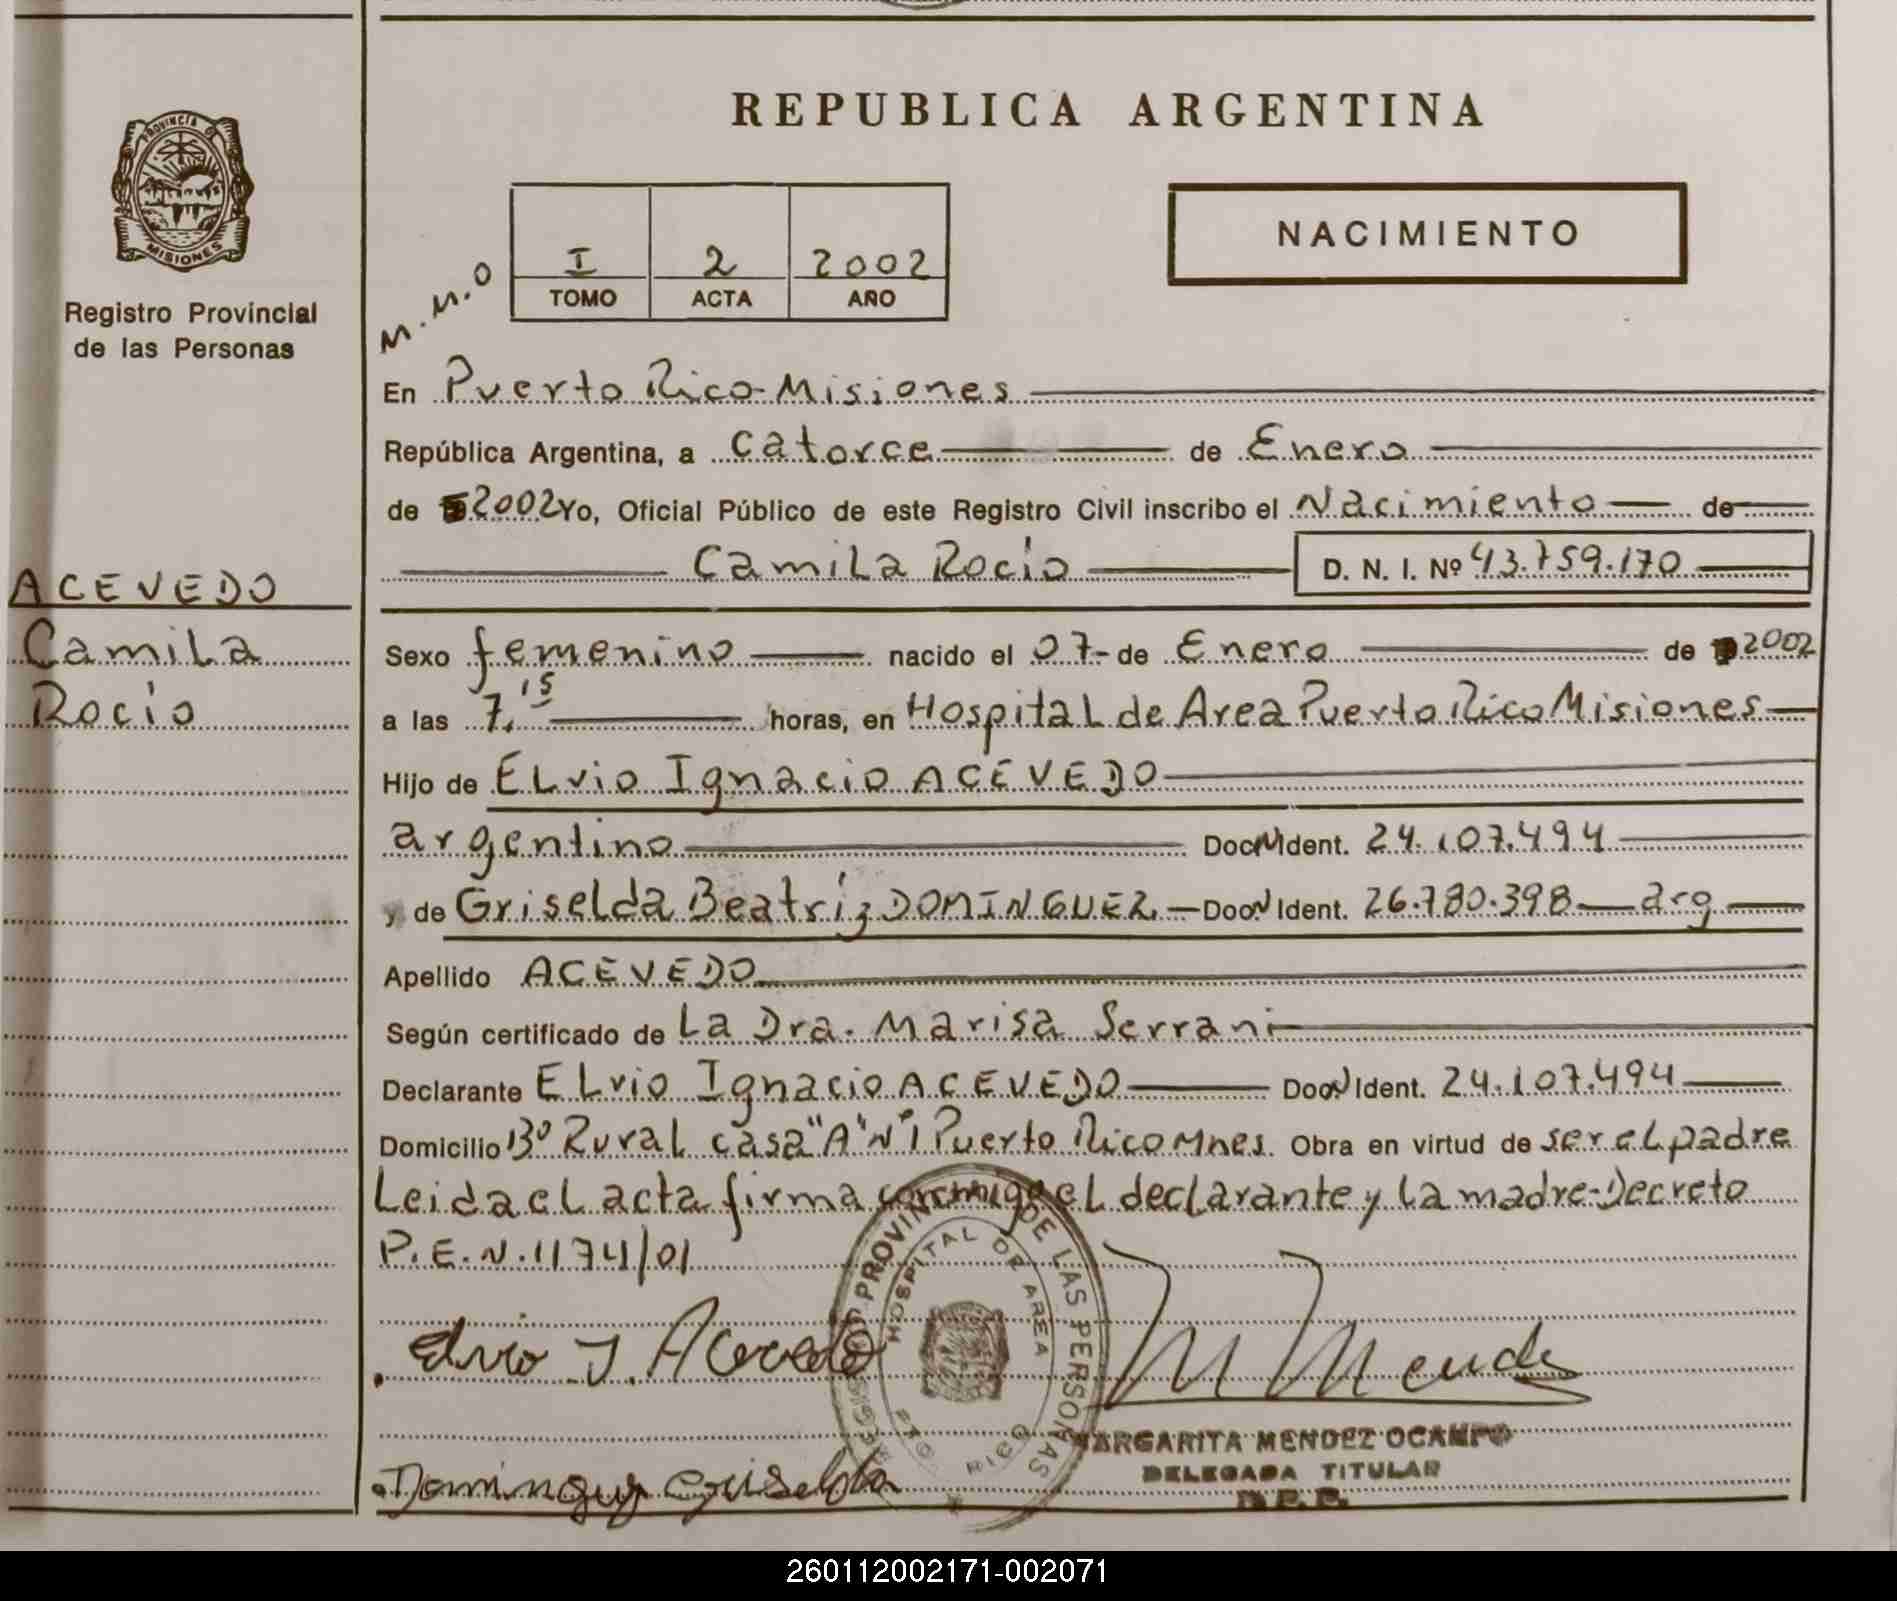 REPUBLICA ARGENTINA
PROVINCIA D
MISIONES
Registro Provincial
de las Personas
NACIMIENTO
M.M.O
I 2 2002
TOMO ACTA AÑO
En Puerto Rico-Misiones
República Argentina, a catorce de Enero
de 2002 Yo, Oficial Público de este Registro Civil inscribo el Nacimiento de
Camila Rocío D. N. I. Nº 43.759.170
ACEVEDO
Camila
Rocío
Sexo femenino nacido el 07- de Enero de 2002
a las 7.15 horas, en Hospital de Area Puerto Rico Misiones
Hijo de Elvio Ignacio ACEVEDO
argentino Doc N Ident. 24.107.494
y de Griselda Beatríz DOMINGUEZ Doc N Ident. 26.780.398 arg
Apellido ACEVEDO
Según certificado de La Dra. Marisa Serrani
Declarante Elvio Ignacio ACEVEDO Doc N Ident. 24.107.494
Domicilio Bº Rural casa "A" Nº 1 Puerto Rico Mnes. Obra en virtud de ser el padre
Leida el acta firma conmigo el declarante y la madre-Decreto
P.E.N. 1174/01
Elvio I. Acevedo
M Mende
PROVIN DE LAS PERSONAS
HOSPITAL DE AREA
PTO RICO
MARGARITA MENDEZ OCAMPO
DELEGADA TITULAR
Dominguez Griselda
260112002171-002071